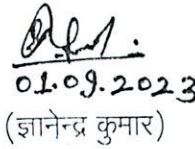 01.09.2023
(ज्ञानेन्द्र कुमार)